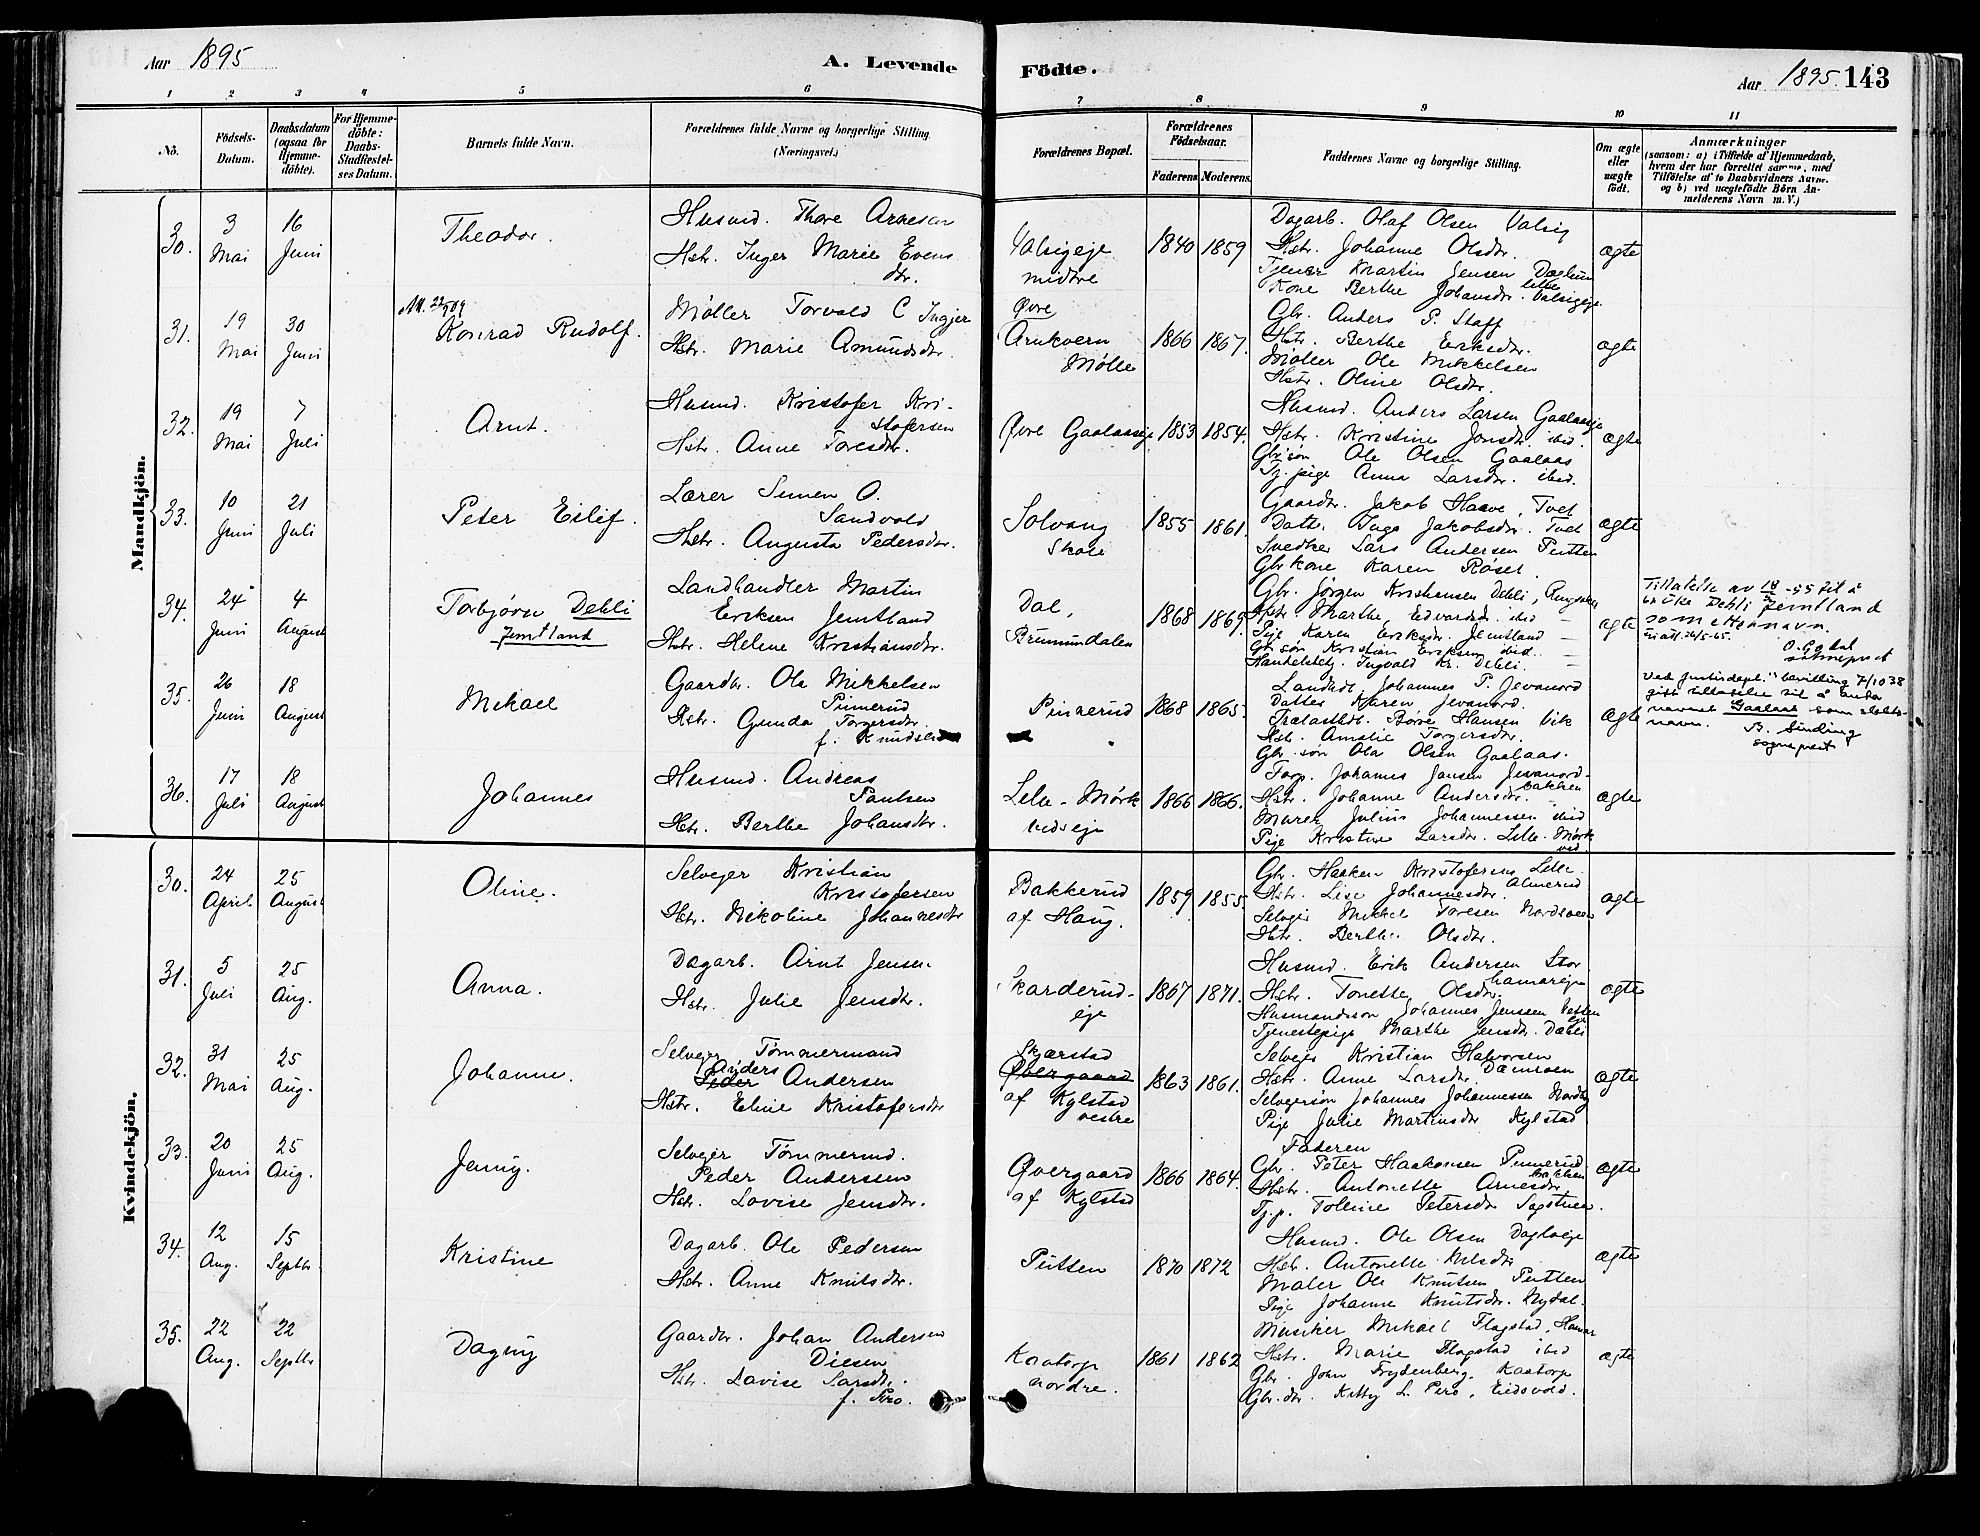 Aar 1895
A. Levende
Födte.
Aar 1895. 143
1 2 3 4 5 6 7 8 9 10 11
No.
Födsels-
Datum.
Daabsdatum
(ogsaa for
Hjemme-
döbte).
For Hjemme-
döbte:
Daabs-
Stadfæstel-
ses Datum.
Barnets fulde Navn.
Forældrenes fulde Navne og borgerlige Stilling.
(Næringsvei.)
Forældrenes Bopæl.
Forældrenes
Födselsaar.
Faderens Moderens.
Faddernes Navne og borgerlige Stilling.
Om ægte
eller
uægte
födt.
Anmærkninger
(saasom: a) i Tilfælde af Hjemmedaab,
hvem der har forrettet samme, med
Tilföielse af to Daabsvidners Navne.
og b) ved uægtefödte Börn An-
melderens Navn m. V.)
Mandkjön.
30.
3
Mai
16
Juni
Theodor.
Husmd. Thore Arnesen
Hstr. Inger Marie Evens
dtr.
Valsigeje
midtre
1840 1859
Dagarb. Olaf Olsen Valsig
Hstr. Johanne Olsdtr.
Tjener Martin Jensen Dæhlin
Kone Berthe Johansdtr. Valsigeje
ægte
31.
19
Mai
30
Juni
Konrad Rudolf.
Møller Torvald C Ingjer
Hstr. Marie Amundsdtr.
Øvre
Arnkvern
Mølle
1866 1867.
Gbr. Anders P. Staff
Hstr. Berthe Eriksdtr.
Møller Ole Mikkelsen
Hstr. Oline Olsdtr.
ægte
32.
19
Mai
7
Juli
Arnt.
Husmd. Kristofer Kri-
stofersen
Hstr. Anne Toresdtr.
Øvre Gaalaaseje
1853 1854.
Husmd. Anders Larsen Gaalaaseje
Hstr. Kristine Jonsdtr. ibid
Gbr søn Ole Olsen Gaalaas
Tj. pige Anna Larsdtr. ibid.
ægte
33.
10
Juni
21
Juli
Peter Eilif.
Lærer Simen O.
Sandvold
Hstr. Augusta Pedersdtr.
Solvang
Skole
1855 1861.
Gaardbr. Jakob Haave, Tvet
Datter Inga Jakobsdtr. Tvet
Snedker Lars Andersen Pütten
Gbr kone Karen Røset
ægte
34.
24
Juni
4
August
Torbjørn Dehli
Jemtland
Landhandler Martin
Eriksen Jemtland
Hstr. Helene Kristiansdtr.
Dal,
Brumundalen
1868 1869.
Gbr. Jørgen Kristiansen Dehli, Ringsaker
Hstr. Marthe Edvardsd. ibid
Pige Karen Eriksdtr. Jemtland
Gbr søn Kristian Eriksen ibid.
Handelsbetj. Ingvald Kr. Dehli.
ægte
Tillatelse av 18 -95 til å
bruke Dehli Jemtland
som etternavn.
sokneprest
35.
26
Juni
18
August
Mikael
Gaardbr. Ole Mikkelsen
Pinnerud
Hstr. Gunda Torgersdtr.
f. Knudsen
Pinnerud
1868 1865.
Landhdl. Johannes P. Jevanord
Datter Karen Jevanord.
Trælasthdl. Børre Hansen Vik
Hst. Amalie Torgersdtr.
Gbr. søn Ola Olsen Gaalaas.
ægte
Ved Justisdept.'s bevilling 7/10 38
gitt tillatelse til å anta
navnet Gaalaas som slekts-
navn.
B. Sinding
sogneprest
36.
17
Juli
18
August
Johannes
Husmd. Andreas
Paulsen
Hstr. Berthe Johansdtr.
Lille-Mørk
vedseje
1866 1866.
Torp. Johannes Jansen Jevanord-
bakken
Hstr. Johanne Andersdtr.
Maren Julius Johannessen ibid
Pige Kristine Larsdtr. Lille-Mørk
ved.
ægte
Kvindekjön.
30.
24
April
25
August
Oline.
Selveger Kristian
Kristofersen
Hstr. Nikoline Johannesdtr
Bakkerud
af Haug.
1859 1855.
Gbr. Haaken Kristofersen Lille-
Almerud
Hstr. Lise Johannesdtr
Selveger Mikkel Toresen Nordsveen
Hstr. Berthe Olsdtr.
ægte
31.
5
Juli
25
Aug.
Anna.
Dagarb. Arnt Jensen
Hstr. Julie Jensdtr.
Skarderud-
eje
1867 1871.
Husmd. Erik Andersen Stor
hamareje
Hstr. Tonette Olsdtr
Husmandssøn Johannes Jenssen
Tjenestepige Marthe Jensdtr. Dæhli
ægte
32.
31
Mai
25
Aug.
Johanne.
Selveger Tømmermand
Anders
Peder Andersen
Hstr. Eline Kristofersdtr
Skjærstad
Øvergaard
af Kylstad
vestre
1863 1861.
Selvejer Kristian Halvorsen
Hstr. Anne Larsdtr.
Selvegersøn Johannes Johannessen Nordby
Pige Julie Martinsdtr Kylstad
ægte
33.
20
Juni
25
Aug.
Jenny.
Selveger Tømmermd.
Peder Anderssen
Hstr. Lovise Jensdtr.
Øvergaard
af Kylstad
1866 1864.
Faderen
Gbr. Peter Haakonsen Pinnerud
bakken
Hstr. Antonette Arnesdtr
Tj.p. Tolline Petersdtr Sagstuen.
ægte
34.
12
Aug.
15
Septbr.
Kristine
Dagarb. Ole Pedersen
Hstr. Anne Knutsdtr.
Pütten
1870 1872
Husmd. Ole Olsen
Hstr. Antonette Nilsdtr
Maler Ole Knutsen Pütten
Pige Johanne Knutsdtr. Nydal.
ægte
35.
22
Aug.
22
Septbr
Dagny
Gaardbr. Johan Andersen
Diesen
Hstr. Lovise Larsdtr.
f. Pero.
Kaatorp
nordre.
1861 1862
Musiker Mikael Flagstad, Hamar
Hstr. Marie Flagstad ibid
Gbr. John Frydenberg, Kaatorp
Gbr. dtr. Kitty L. Pero, Eidsvold.
ægte